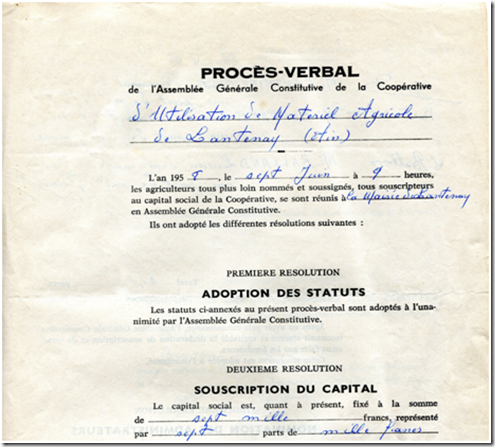 PROCÈS-VERBAL
de l'Assemblée Générale Constitutive de la Coopérative
d'Utilisation de Matériel Agricole
de Lantenay (Ain)
L'an 195 8, le sept Juin à 9 heures,
les agriculteurs tous plus loin nommés et soussignés, tous souscripteurs
au capital social de la Coopérative, se sont réunis à la Mairie de Lantenay
en Assemblée Générale Constitutive.
Ils ont adopté les différentes résolutions suivantes :
PREMIERE RESOLUTION
ADOPTION DES STATUTS
Les statuts ci-annexés au présent procès-verbal sont adoptés à l'una-
nimité par l'Assemblée Générale Constitutive.
DEUXIEME RESOLUTION
SOUSCRIPTION DU CAPITAL
Le capital social est, quant à présent, fixé à la somme
de sept mille francs, représenté
par sept parts de mille francs